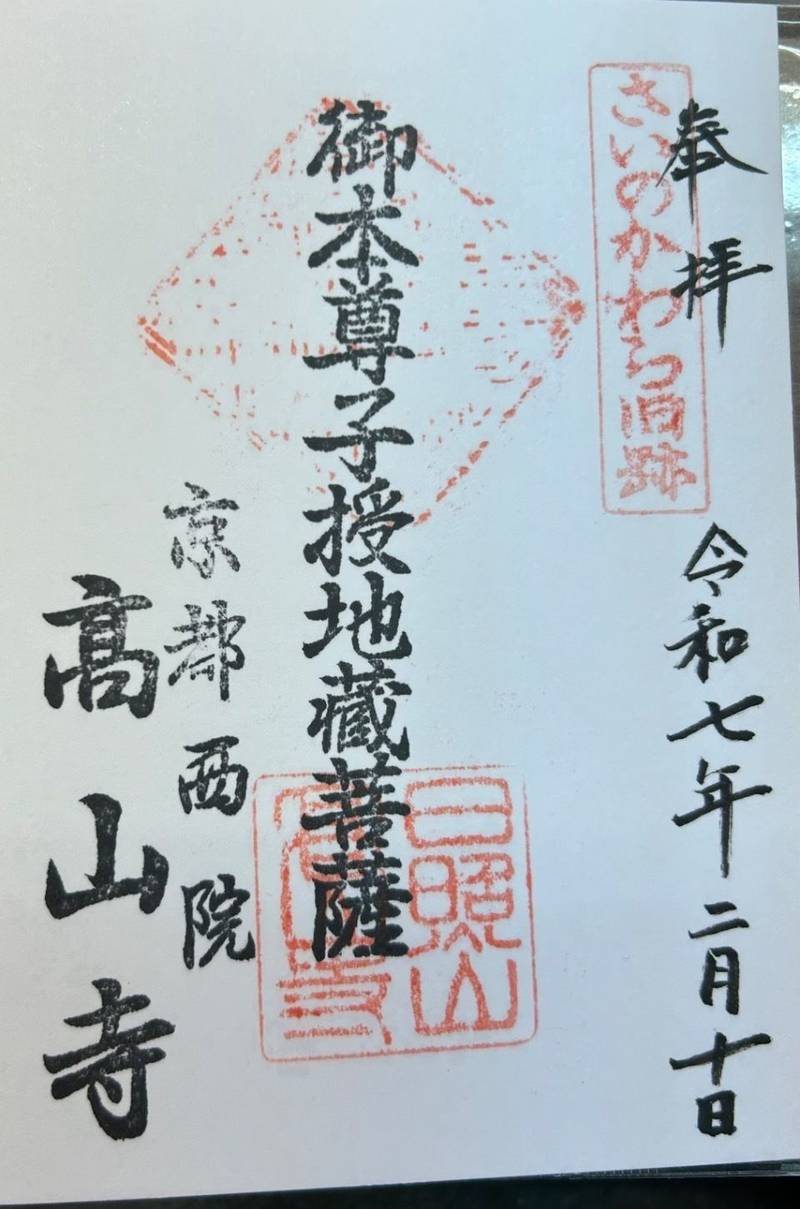 奉拝
令和七年二月十日
さいのかわら旧跡
御本尊子授地藏菩薩
日照山
高山寺
京都西院
高山寺